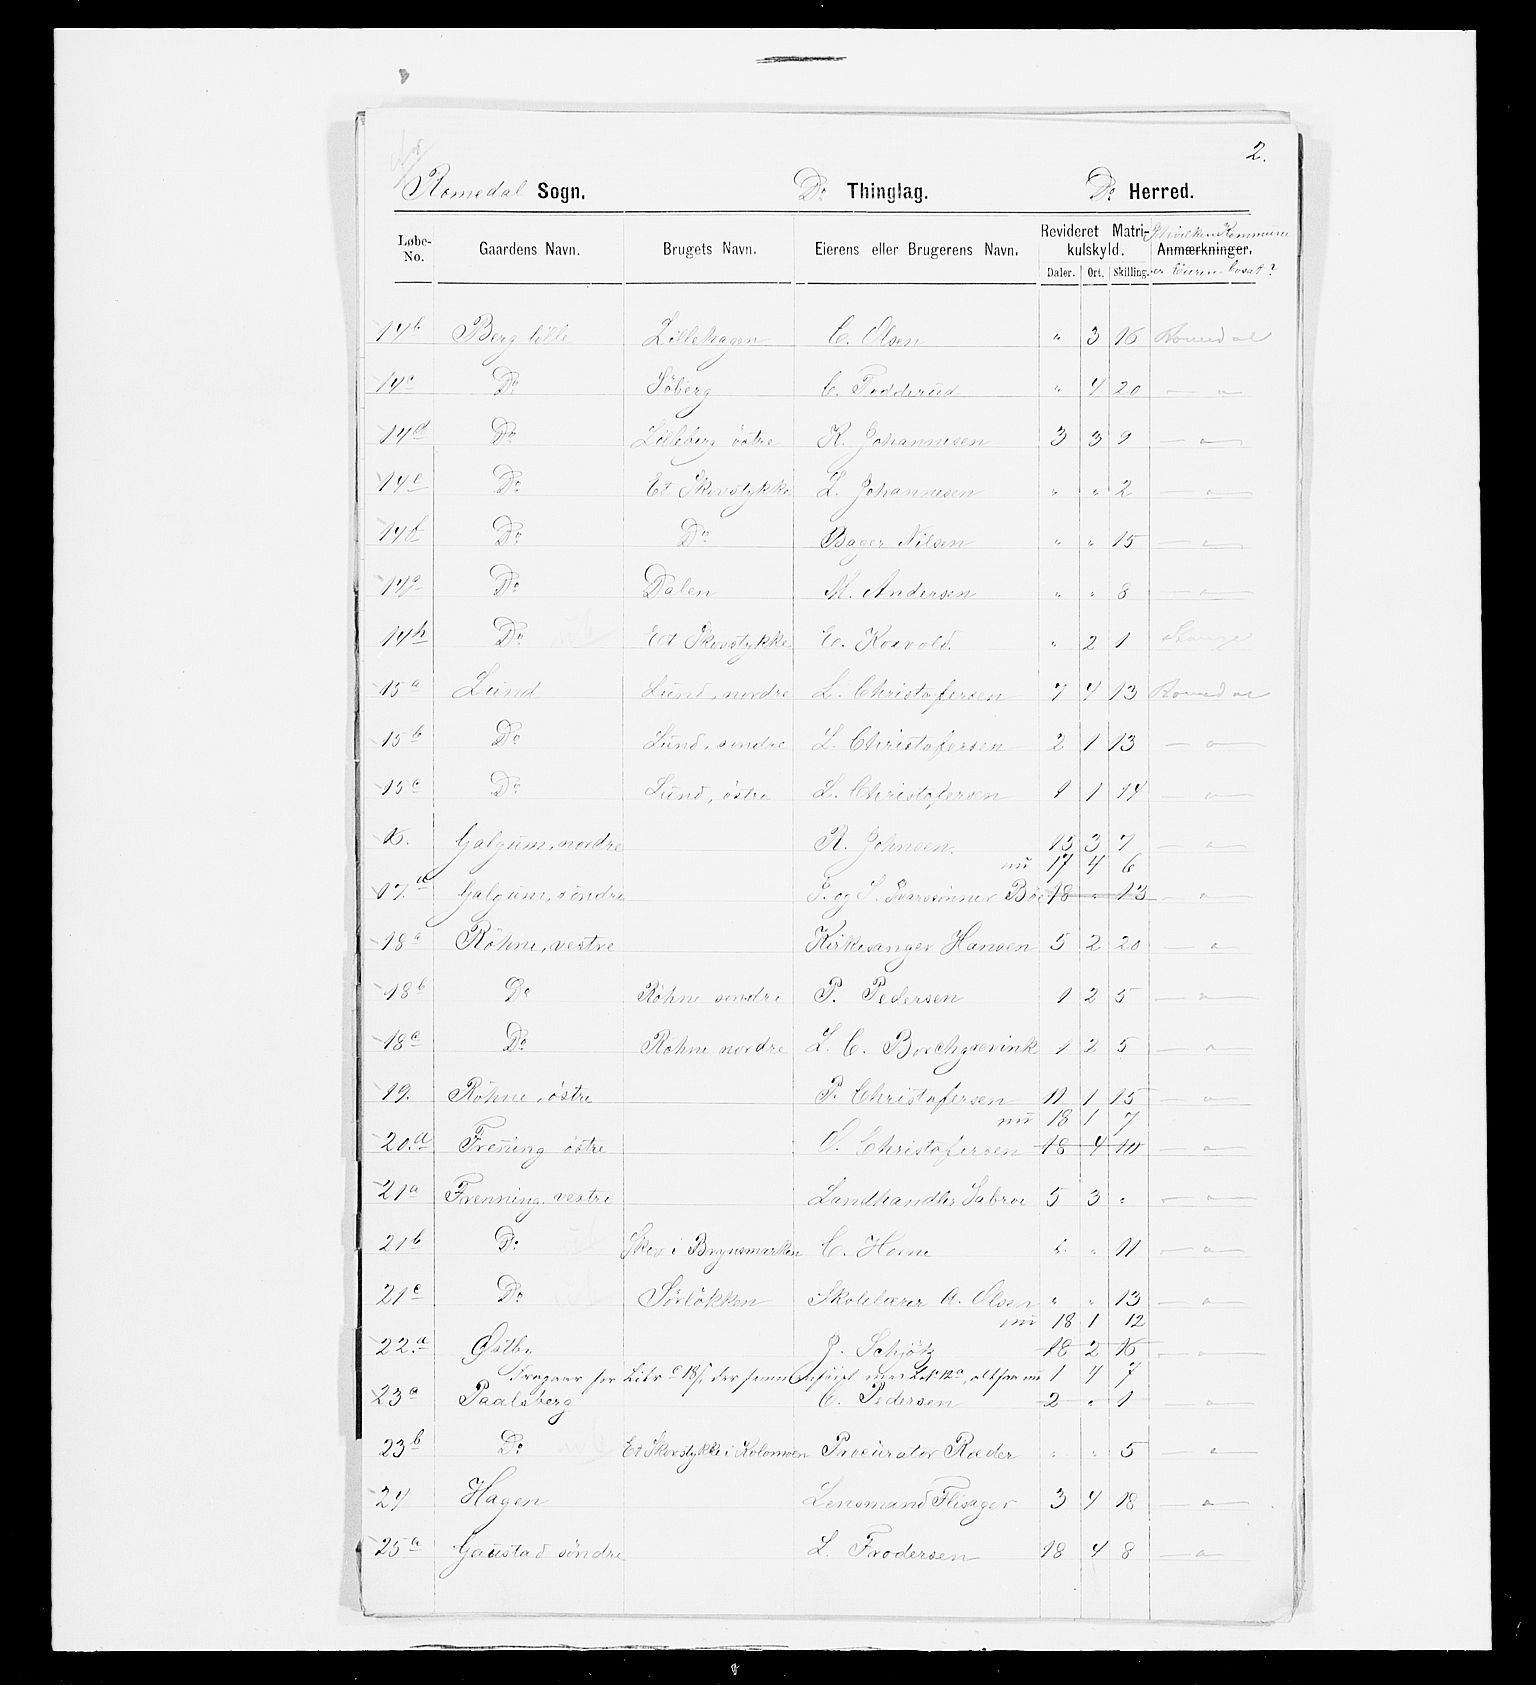 2.
Romedal Sogn. Do Thinglag. Do Herred.
Løbe-No. Gaardens Navn. Brugets Navn. Eierens eller Brugerens Navn. Revideret Matrikulskyld. Anmærkninger. I hvilken Kommune er Eieren bosat?
Daler. Ort. Skilling.
14b Berg lille Lillehagen C. Olsen " 3 16 Romedal
14c Do Söberg C. Fodderud " 4 20 — " —
14d Do Lilleberg östre K. Johannesen 3 3 9 — " —
14e Do Et Skovstykke L. Johannesen " " 2 — " —
14f Do Do Bager Nilsen " " 15 — " —
14g Do Dalen M. Andersen " " 8 — " —
14h Do Et Skovstykke E. Kvævold. " 2 1 Stange
15a Lund Lund, nordre L. Christofersen 7 4 13 Romedal
15b Do Lund, söndre L. Christofersen 2 1 13 — " —
15c Do Lund, östre L. Christofersen 1 1 14 — " —
16. Galgum, nordre R. Johnsen. 15 3 7 — " —
nu 17 4 6
17.a Galgum, söndre P. og S. Ivarssönner Böe 18 " 13 — " —
18a Röhne, vestre Kirkesanger Hansen 5 2 20 — " —
18b Do Röhne söndre P. Pedersen 1 2 5 — " —
18c Do Röhne nordre L. C. Borchgrevink 1 2 5 — " —
19. Röhne, östre P. Christofersen 11 1 15 — " —
nu 18 1 7
20.a Frening östre O. Christofersen 18 4 10 — " —
21a Frenning vestre Landhandler Sabroe 5 3 " — " —
21b Do Skov i Brynsmarken C. Horne " " 11 — " —
21c Do Sörlökken Skolelærer A. Olsen " " 13 — " —
nu 18 1 12
22.a Østby J. Schjötz 18 2 16 — " —
Fragaar for Löbr 18f, der sammenföiet med 12a, altsaa nu 1 4 7
23a Paalsberg C. Pedersen 2 " 1 — " —
23b Do Et Skovstykke i Kolomoen Procurator Ræder " " 5 — " —
24 Hagen Lensmand Flisager 3 4 18 — " —
25a Gaustad söndre L. Frodersen 18 4 8 — " —